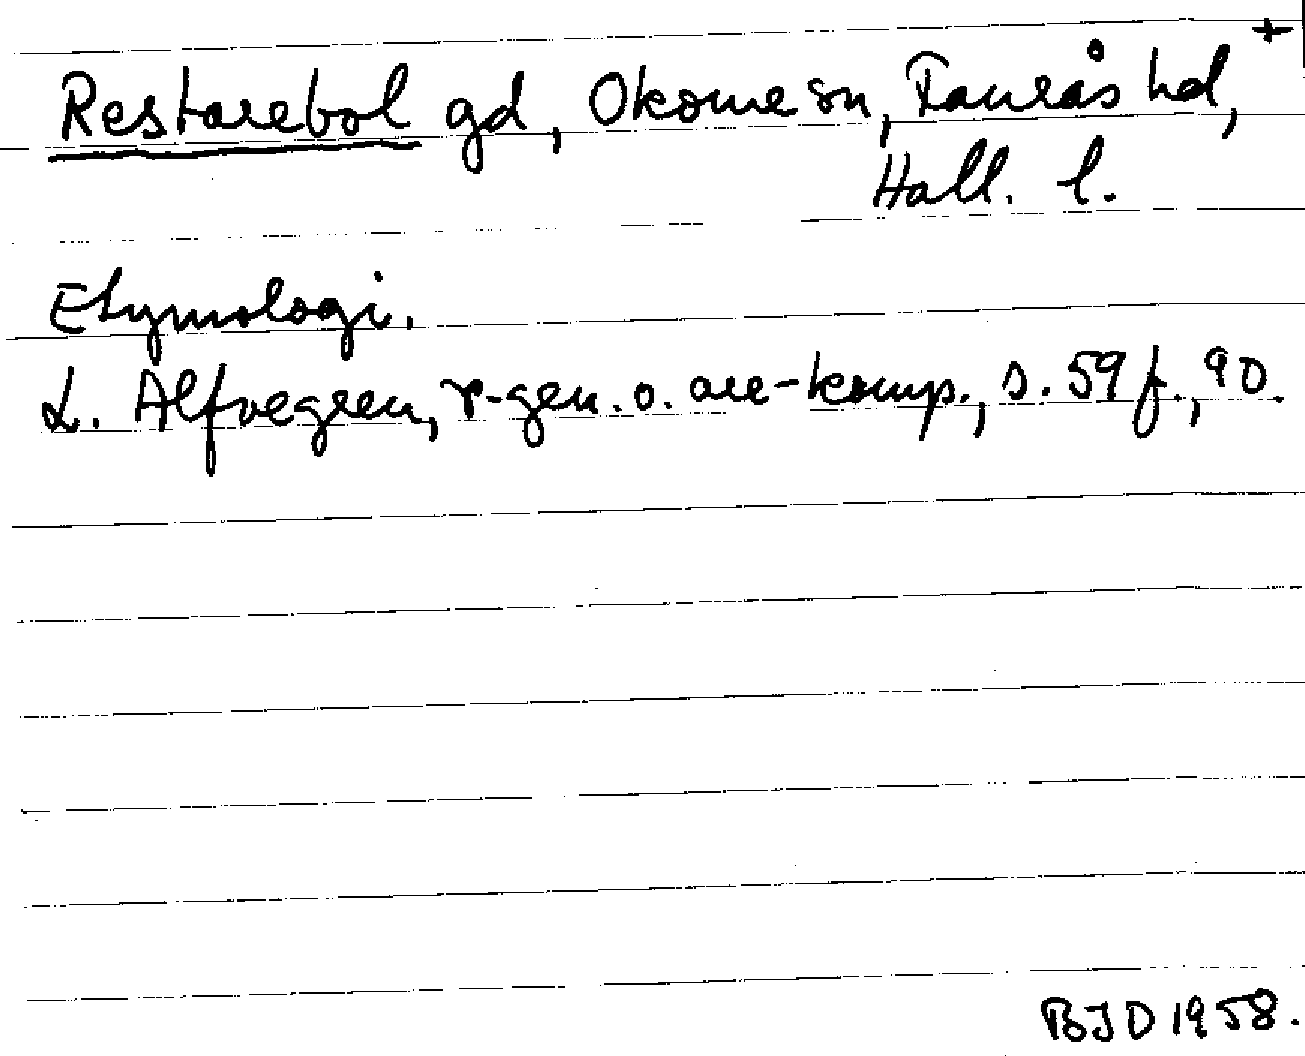 +
Restarebol gd, Okome sn, Faurås hd,
Hall. l.
Etymologi.
L. Alfvegren, r-gen. o. are-komp., s. 59 f., 90.
BJD 1958.